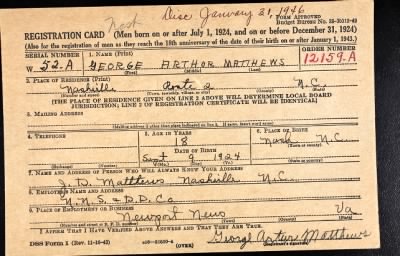 Disc January 31, 1946
FORM APPROVED
Budget Bureau No. 33-R012-42
REGISTRATION CARD (Men born on or after July 1, 1924, and on or before December 31, 1924)
(Also for the registration of men as they reach the 18th anniversary of the date of their birth on or after January 1, 1943.)
SERIAL NUMBER 1. NAME (Print) ORDER NUMBER
W 52.A GEORGE ARTHUR MATTHEWS 12159.A
(First) (Middle) (Last)
2. PLACE OF RESIDENCE (Print)
Nashville Route 2 N.C.
(Number and street) (Town, township, village, or city) (County) (State)
[THE PLACE OF RESIDENCE GIVEN ON LINE 2 ABOVE WILL DETERMINE LOCAL BOARD
JURISDICTION; LINE 2 OF REGISTRATION CERTIFICATE WILL BE IDENTICAL]
3. MAILING ADDRESS
[Mailing address if other than place indicated on line 2. If same, insert word same]
4. TELEPHONE 5. AGE IN YEARS 6. PLACE OF BIRTH
18 Nash N.C.
DATE OF BIRTH (Town or county)
Sept. 9 1924
(Exchange) (Number) (Mo.) (Day) (Yr.) (State or country)
7. NAME AND ADDRESS OF PERSON WHO WILL ALWAYS KNOW YOUR ADDRESS
J. D. Matthews Nashville N.C.
8. EMPLOYER'S NAME AND ADDRESS
N.N.S. & D.D. Co
9. PLACE OF EMPLOYMENT OR BUSINESS
Newport News Va
(Number and street or R. F. D. number) (Town) (County) (State)
I AFFIRM THAT I HAVE VERIFIED ABOVE ANSWERS AND THAT THEY ARE TRUE.
DSS Form 1 (Rev. 11-16-42) (OVER) George Arthur Matthews